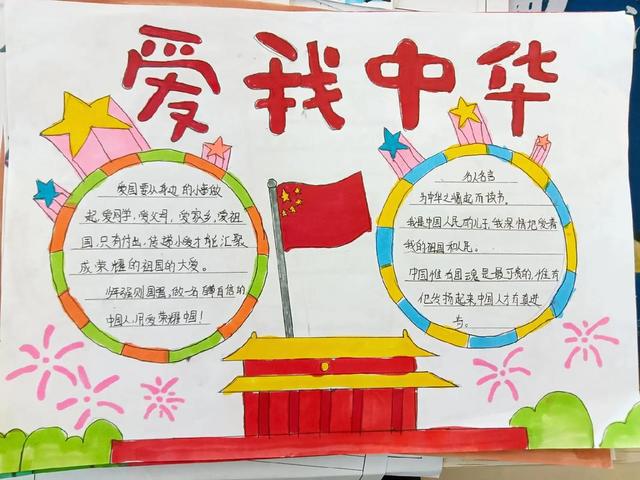 爱我中华
爱国要从身边的小事做
起,爱同学,爱父母,爱家乡,爱祖
国,只有付出,传递小爱才能汇聚
成荣耀的祖国的大爱。
少年强则国强,做一名自信的
中国人,用爱荣耀中国!
名人名言
为中华之崛起而读书。
我是中国人民的儿子,我深情地爱着
我的祖国和人民。
中国惟有国魂是最可贵的,惟有
他发扬起来,中国人才有真进
步。